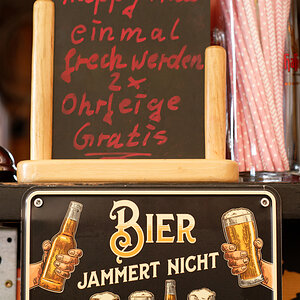 Happy Hour
einmal
frech werden
2x
Ohrfeige
Gratis
BIER
JAMMERT NICHT